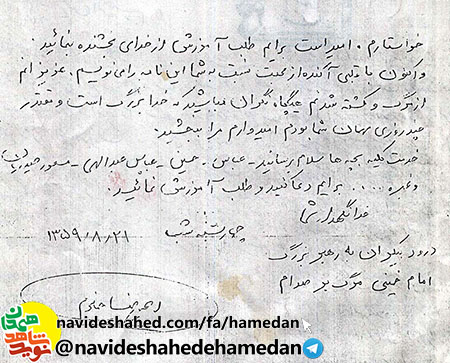 خواستارم. امید است برایم طلب آمرزش از خدای بخشنده نمائید.
و اکنون با قلبی آکنده از محبت نسبت به شما این نامه را می نویسم. عزیزانم
از مرگ و کشته شدنم هیچگاه نگران نباشید که خدا بزرگ است و مقتدر
چند روزی مهمان شما بودم امیدوارم مرا ببخشید.
خدمت کلیه بچه ها سلام برسانید - عباس - حسن - عباس عبدالهی - مسعود
وغیره ..... برایم دعا کنید و طلب آمرزش نمائید.
خدانگهدار شما
چهارشنبه شب ۱۳۵۹/۸/۲۱
درود بیکران به رهبر بزرگ
امام خمینی مرگ بر صدام
نوید شاهد همدان
navideshahed.com/fa/hamedan
@navideshahedehamedan